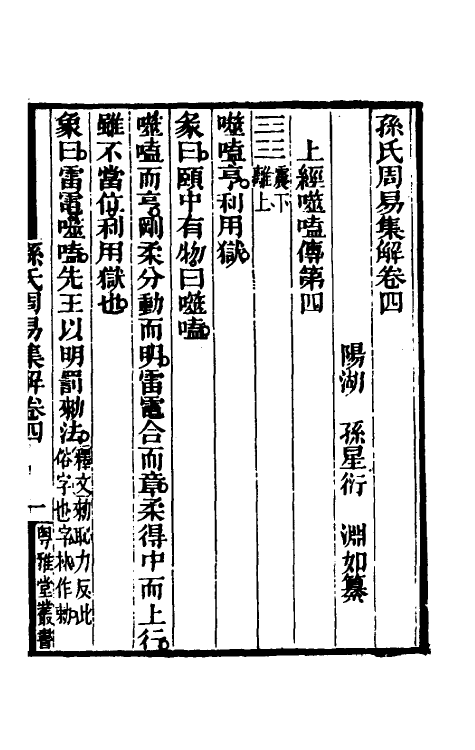 孫氏周易集解卷四
陽湖 孫星衍 淵如纂
上經噬嗑傳第四
震下
離上
噬嗑亨。利用獄。
彖曰。頤中有物。曰噬嗑。
噬嗑而亨。剛柔分動而明。雷電合而章。柔得中而上行。
雖不當位。利用獄也。
象曰。雷電噬嗑。先王以明罰勑法。釋文勑恥力反此
俗字也字林作勅
孫氏周易集解卷四 一 粵雅堂叢書